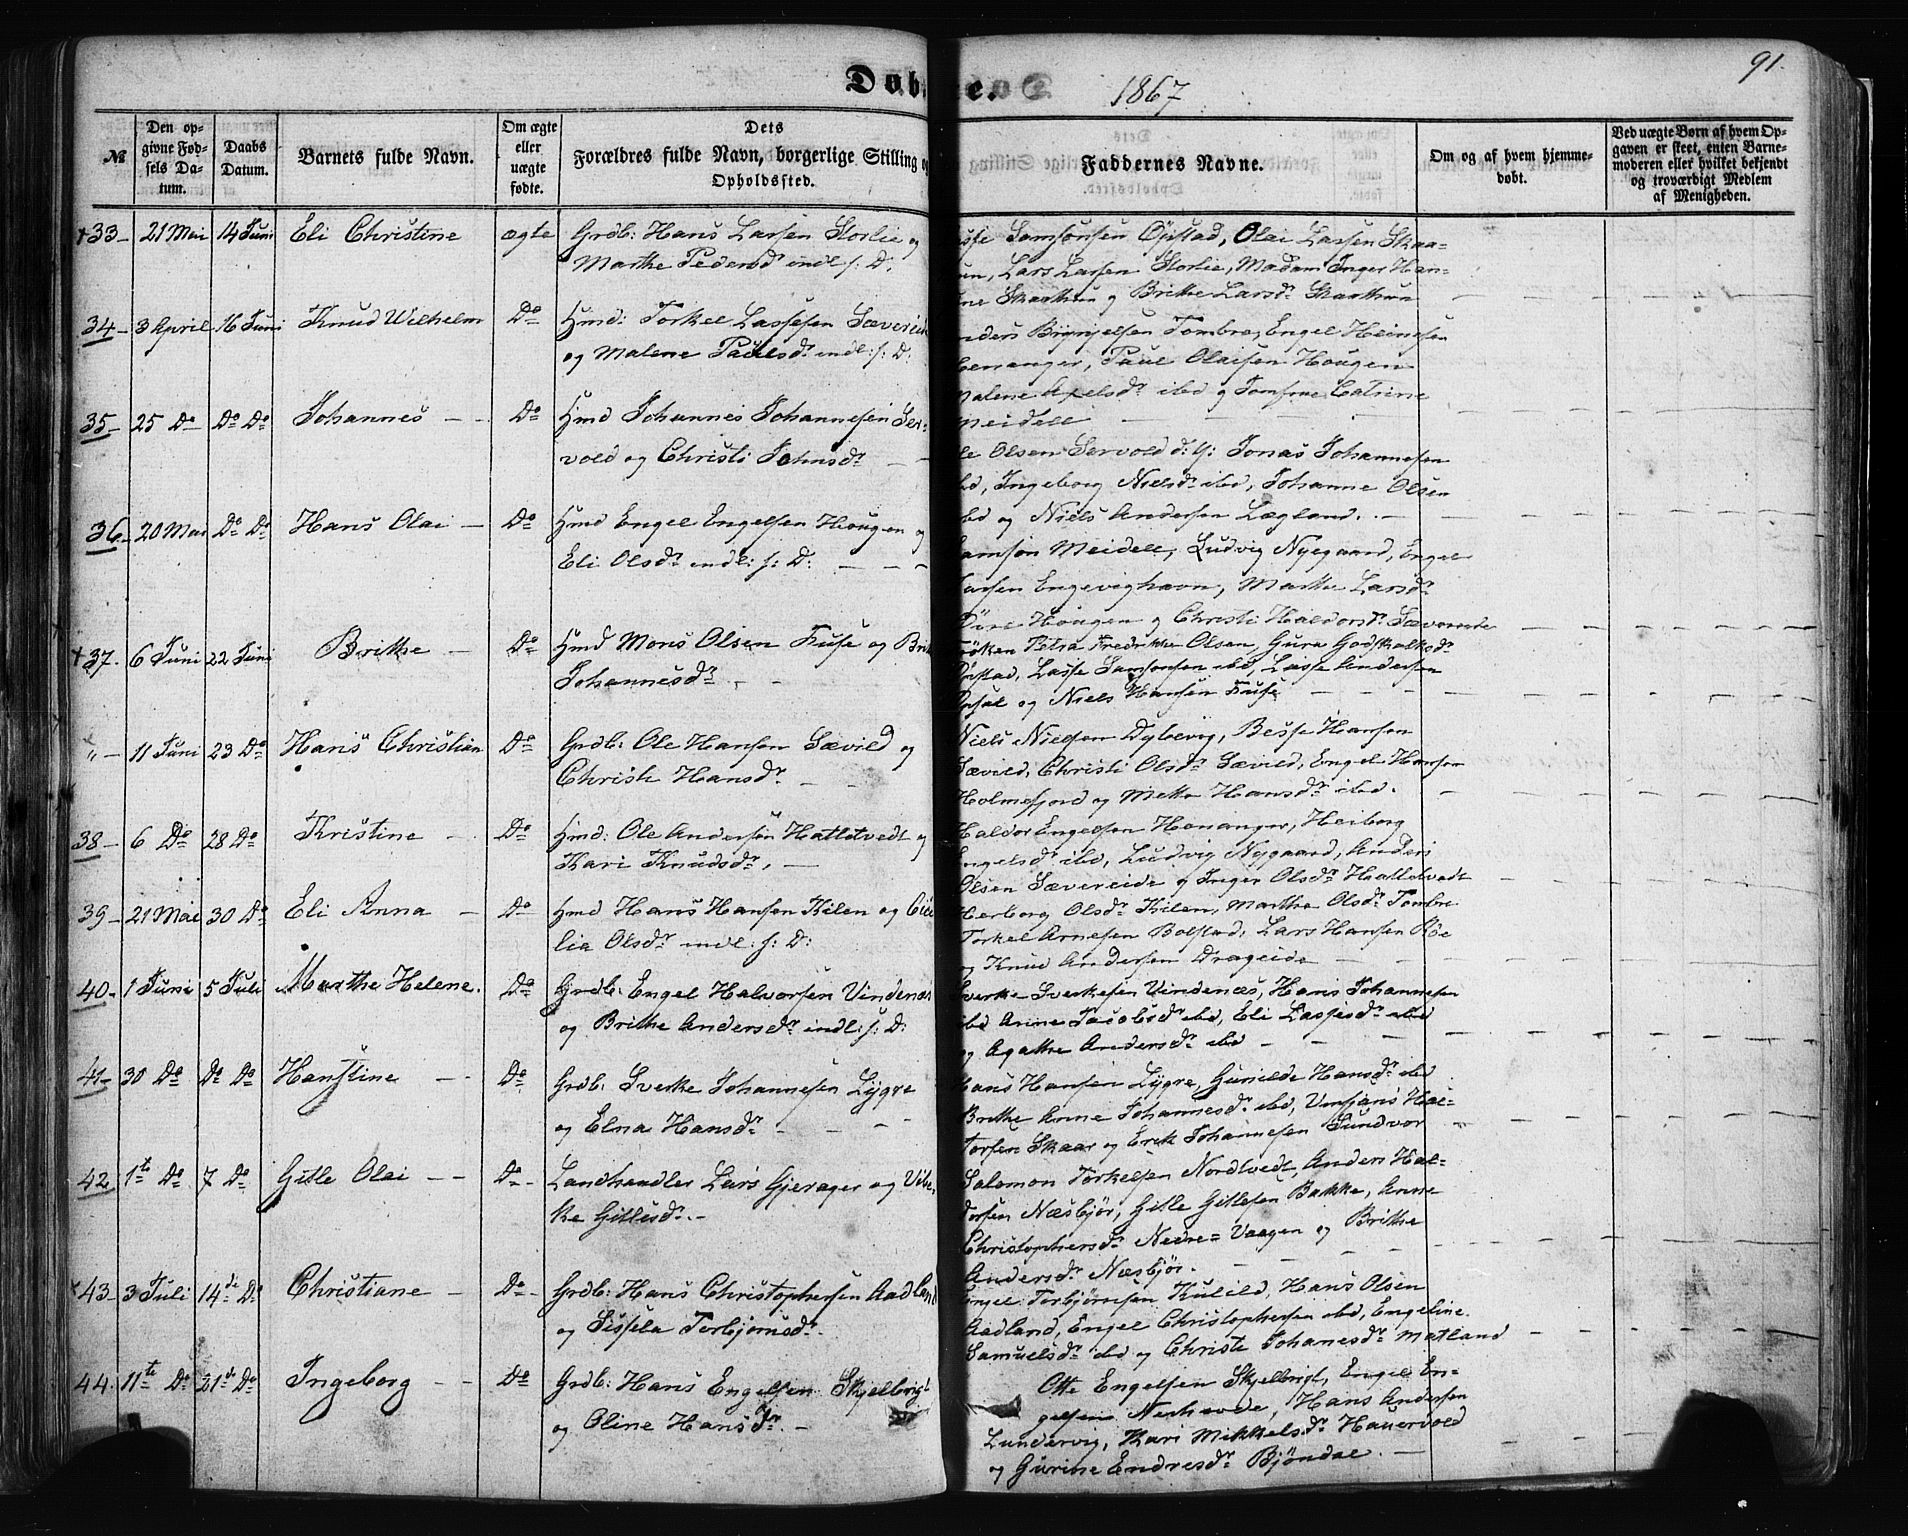 91.
Døb e.
1867
№
Den op-
givne Fød-
sels Da-
tum.
Daabs
Datum.
Barnets fulde Navn.
Om ægte
eller
uægte
fødte.
Dets
Forældres fulde Navn, borgerlige Stilling og
Opholdssted.
Faddernes Navne.
Om og af hvem hjemme-
døbt.
Ved uægte Børn af hvem Op-
gaven er skeet, enten Barne-
moderen eller hvilket bekjendt
og troværdigt Medlem
af Menigheden.
+33 – 21 Mai 14 Juni Eli Christine ægte Grdb: Hans Larsen Storlie og
Marthe Pedersdr indl: s: D.
Samsonsen Opstad, Olai Larsen Skaa-
Lars Larsen Storlie, Madam Inger Han-
Skaathun og Brithe Larsdr Skaathun
34 – 3 April 16 Juni Knud Wilhelm Do Hmd: Torkel Lassesen Sævereide
og Malene Paulsdr indl: s: D:
Tombre, Engel Heinesen
Henanger, Paul Olaisen Hougen
Malene Axelsdr ibd og Jomfrue Catrine
Meidell
35 – 25 Do Do Do Johannes – – Do Hmd Johannes Johannesen Ser-
vold og Christi Johnsdr – –
Olsen Servold d: y: Jonas Johannesen
ibd, Ingeborg Nielsdr ibd, Johanne Olsen
ibd og Niels Andersen Lægland. –
36 – 20 Mai Do Do Hans Olai – Do Hmd Engel Engelsen Hougen og
Eli Olsdr indl: s: D: – – –
Samson Meidell, Ludvig Nygaard, Engel
Larsen Engevighavn, Marthe Larsdr
Hougen og Christi Haldorsdr Sævereide
+37. 6 Juni 22 Juni Brithe – Do Hmd Mons Olsen Fuse og Brit
Johannesdr – –
Frøken Petra Fredrikke Olsen, Guro Godskalksdr
Opstad, Lasse Samsonsen ibd, Lasse Andersen
og Niels Hansen Fuse – – –
„ – 11 Juni 23 Do Hans Christian Do Grdb: Ole Hansen Sævild og
Christi Hansdr – –
Niels Nielsen Dybevig, Besse Hansen
Sævild, Christi Olsdr Sævild, Engel Hansen
Holmefjord og Mette Hansdr ibd.
38 – 6 Do 28 Do Kristine – Do Hmd: Ole Andersen Hatletvedt og
Kari Knudsdr, –
Haldor Engelsen Henanger, Heiborg
Engelsdr ibd, Ludvig Nygaard, Anders
Olsen Sævereide og Inger Olsdr Hatletvedt
39 – 21 Mai 30 Do Eli Anna – Do Hmd Hans Hansen Kilen og Ceci
lia Olsdr indl: s: D:
Herborg Olsdr Kilen, Marthe Olsdr Tombre
Torkel Arnesen Bolstad, Lars Hansen Røe
og Knud Andersen Drageide – –
40 – 1 Juni 5 Juli Marthe Helene. Do Grdb: Engel Halvorsen Vindenæs
og Brithe Andersdr indl: s: D:
Sverke Sverkesen Vindenæs, Hans Johannesen
ibd Anne Jacobsdr ibd, Eli Lassesdr ibd
og Agathe Andersdr ibd – – –
41 – 30 Do Do Do Hanstine – – Do Grdb: Sverke Johannesen Lygre
og Elna Hansdr – – –
Hans Hansen Lygre, Gunilde Hansdr ibd
Brithe Anne Johannesdr ibd, Hal-
torsen Skaar og Erik Johannesen Sundvor
42 1te Do 7 Do Gitle Olai – – Do – Landhandler Lars Gjerager og Vibe-
ke Gitlesdr –
Salomon Torkelsen Nordtvedt, Anders Hal-
dorsen Næsbjør, Gitle Gitlesen Bakke, Anne
Christophersdr Nedre=Vaagen og Brithe
Andersdr Næsbjør. – – – –
×43 – 3 Juli 14de Do Christiane – Do – Grdb: Hans Christophersen Aadland
og Sissela Torbjørnsdr.
Engel Torbjørnsen Kulild, Hans Olsen
Aadland, Engel Christophersen ibd, Engeline
Samuelsdr ibd og Christi Johanesdr Matland
44. 11te Do 21de Do Ingeborg – – Do Grdb: Hans Engelsen Skjelbrigt
og Oline Hansdr. –
Otte Engelsen Skjelbrigt, Engel En-
gelsen Nerhovde, Hans Andersen
Lundervig, Kari Mikkelsdr Hauervold
og Gurine Endresdr Bjøndal. –